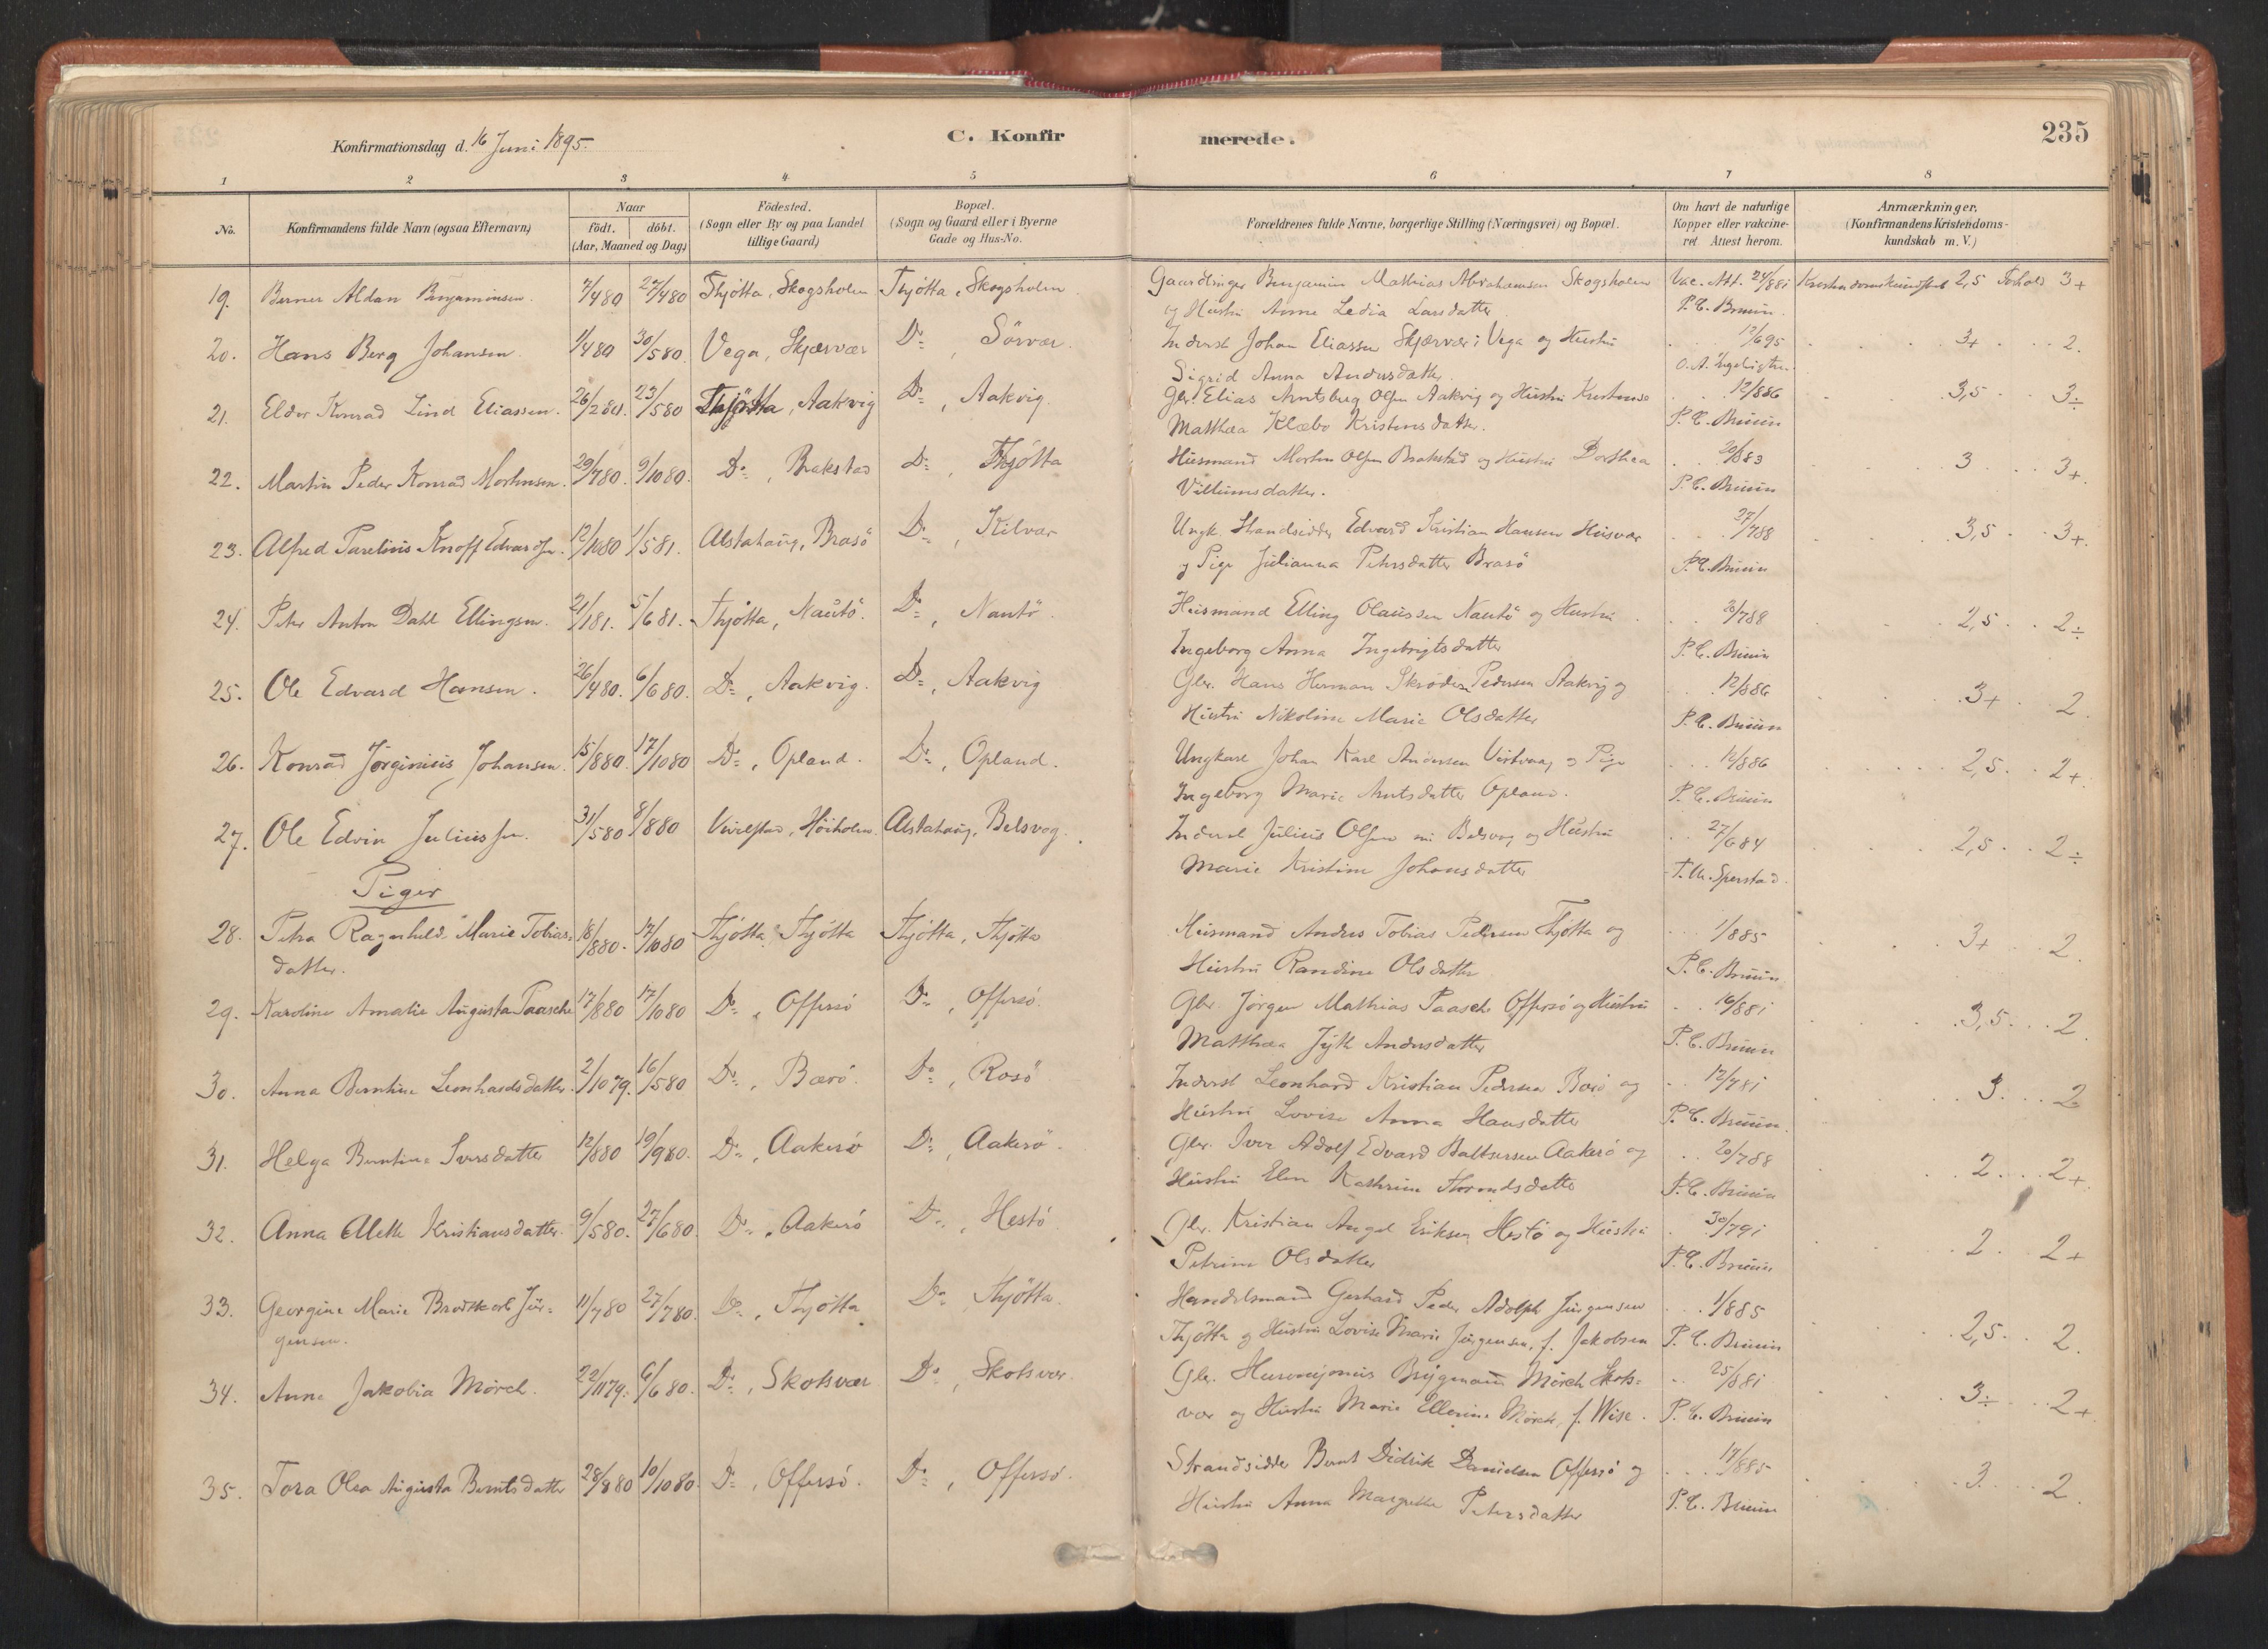 Konfirmationsdag d. 16 Juni 1895.
C. Konfirmerede.
235
1 2 3 4 5 6 7 8
No.
Konfirmandens fulde Navn (ogsaa Efternavn)
Naar
födt. döbt.
(Aar, Maaned og Dag)
Födested.
(Sogn eller By og paa Landet
tillige Gaard)
Bopæl.
(Sogn og Gaard eller i Byerne
Gade og Hus-No.
Forældrenes fulde Navne, borgerlige Stilling (Næringsvei) og Bopæl.
Om havt de naturlige
Kopper eller vakcine-
ret Attest herom.
Anmærkninger,
(Konfirmandens Kristendoms-
kundskab m. V.)
19. Berner Aldan Benjaminsen. 7/4 80 27/4 80 Thjötta, Skogsholm Thjötta, Skogsholm Gaardbruger Benjamin Mathias Abrahamsen Skogsholm Vac. Att. 24/8 81 Kristendomskundskab 2,5 Forhold 3+
og Hustru Anne Ledia Larsdatter P. C. Bruun.
20. Hans Berg Johansen. 1/4 80 30/5 80. Vega, Skjærvær Do , Sörvær. Inderst Johan Eliassen Skjærvær i Vega og Hustru 12/6 95 3+ 2.
Sigrid Anna Andersdatter. O. A.
21. Eldor Konrad Lind Eliassen. 26/2 80. 23/5 80 Thjötta, Aakvig Do , Aakvig. Gbr. Elias Arntsberg Olsen Aakvig og Hustru 12/8 86 3,5 3÷
Matthea Klæbo Kristensdatter. P. C. Bruun
22. Martin Peder Konrad Mortensen. 29/7 80. 9/10 80. Do , Brakstad Do , Thjötta Husmand Morten Olsen Brakstad og Hustru Dorthea 20/8 83 3 3+.
Villumsdatter. P. C. Bruun
23. Alfred Parelius Knoff Edvardsen. 12/10 80 1/5 81. Alstahaug, Brasö Do , Kilvær Ungk. Strandsidder Edvard Kristian Hansen Husvær 27/7 88 3,5 3+.
og Pige Julianna Petersdatter Brasö P. C. Bruun
24. Peter Anton Dahl Ellingsen. 21/1 81. 5/6 81. Thjötta, Nautö. Do , Nautö. Husmand Elling Olaussen Nautö og Hustru 20/7 88 2,5 2÷
Ingeborg Anna Ingebrigtsdatter P. C. Bruun
25. Ole Edvard Hansen. 26/4 80. 6/6 80. Do , Aakvig. Do , Aakvig Gbr. Hans Herman Skröder Pedersen Aakvig og 12/8 86 3+ 2.
Hustru Nikoline Marie Olsdatter P. C. Bruun
26. Konrad Jörginius Johansen. 15/8 80. 17/10 80 Do , Opland. Do , Opland. Ungkarl Johan Karl Andersen og Pige 12/8 86 2,5 2+.
Ingeborg Marie Arntsdatter Opland. P. C. Bruun
27. Ole Edvin Juliussen. 31/5 80 8/8 80 Vivelstad, Höiholm. Alstahaug, Belsvog. Inderst Julius Olsen Belsvog og Hustru 27/6 84 2,5 2÷
Marie Kristine Johansdatter Sperstad.
Piger
28. Petra Ragnhild Marie Tobias= 18/8 80. 17/10 80 Thjötta, Thjötta Thjötta, Thjötta Husmand Anders Tobias Pedersen Thjötta og 1/8 85 3+ 2.
datter. Hustru Randine Olsdatter P. C. Bruun
29. Karoline Amalie Augusta Paasche 17/8 80 17/10 80 Do , Offersö Do , Offersö. Gbr. Jörgen Mathias Paasche Offersö og Hustru 16/8 81 3,5 2.
Matthea Jytte Andersdatter P. C. Bruun
30. Anna Berntine Leonhardsdatter. 2/10 79. 16/5 80 Do , Bærö. Do , Rosö Inderst Leonhard Kristian Pedersen og 12/7 81 3. 2
Hustru Lovise Anna Hansdatter P. C. Bruun.
31. Helga Berntine Iversdatter 12/8 80 19/9 80. Do , Aakerö Do , Aakerö. Gbr. Iver Adolf Edvard Baltsersen Aakerö og 20/7 88 2 2+.
Hustru Elen Kathrine Thorondsdatter P. C. Bruun
32. Anna Alette Kristiansdatter. 9/5 80. 27/6 80. Do , Aakerö Do , Hestö. Gbr. Kristian Angel Eriksen Hestö og Hustru 30/7 91 2 2+
Petrine Olsdatter P. C. Bruun
33. Georgine Marie Brodtkorb Jür= 11/7 80 27/7 80. Do , Thjötta Do , Thjötta. Handelsmand Gerhard Peder Adolph Jürgensen 1/8 85 2,5 2.
gensen. Thjötta og Hustru Lovise Marie Jürgensen, f. Jakobsen P. C. Bruun
34. Anne Jakobia Mörch. 22/11 79. 6/6 80. Do , Skotsvær Do , Skotsvær. Gbr. Brygmann Mörch Skots= 25/8 81 3÷ 2+
vær og Hustru Marie Ellerine Mörch, f. Wise. P. C. Bruun
35. Tora Olea Augusta Berntsdatter 28/8 80 10/10 80. Do , Offersö. Do , Offersö. Strandsidder Bernt Didrik Danielsen Offersö og 17/8 85 3 2.
Hustru Anna Margrethe Petersdatter P. C. Bruun